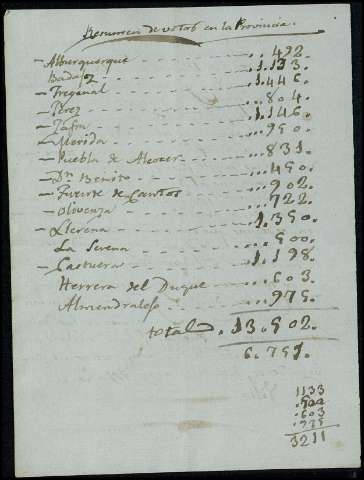 Resumen de votos en la Provincia.
- Alburquerque - - - - - - ... 492
- Badajoz - - - - - - - .. 1.133
- Fregenal - - - - - - .. 1.446.
- Xerez - - - - - - - - .. 804.
- Zafra - - - - - - - .. 1.146.
- Merida - - - - - - - ... 950.
- Puebla de Alcocer - - - - ... 831.
- Dn Benito - - - - - - ... 450.
- Fuente de Cantos - - - - ... 902.
- Olivenza - - - - - - - ... 722.
- Llerena - - - - - - - .. 1.350.
La Serena - - - - - - ... 500.
- Castuera - - - - - - .. 1.198.
Herrera del Duque - - - ... 603.
Almendralejo - - - - - ... 975.
total . 13.502.
6.751.
1133
.603
3211